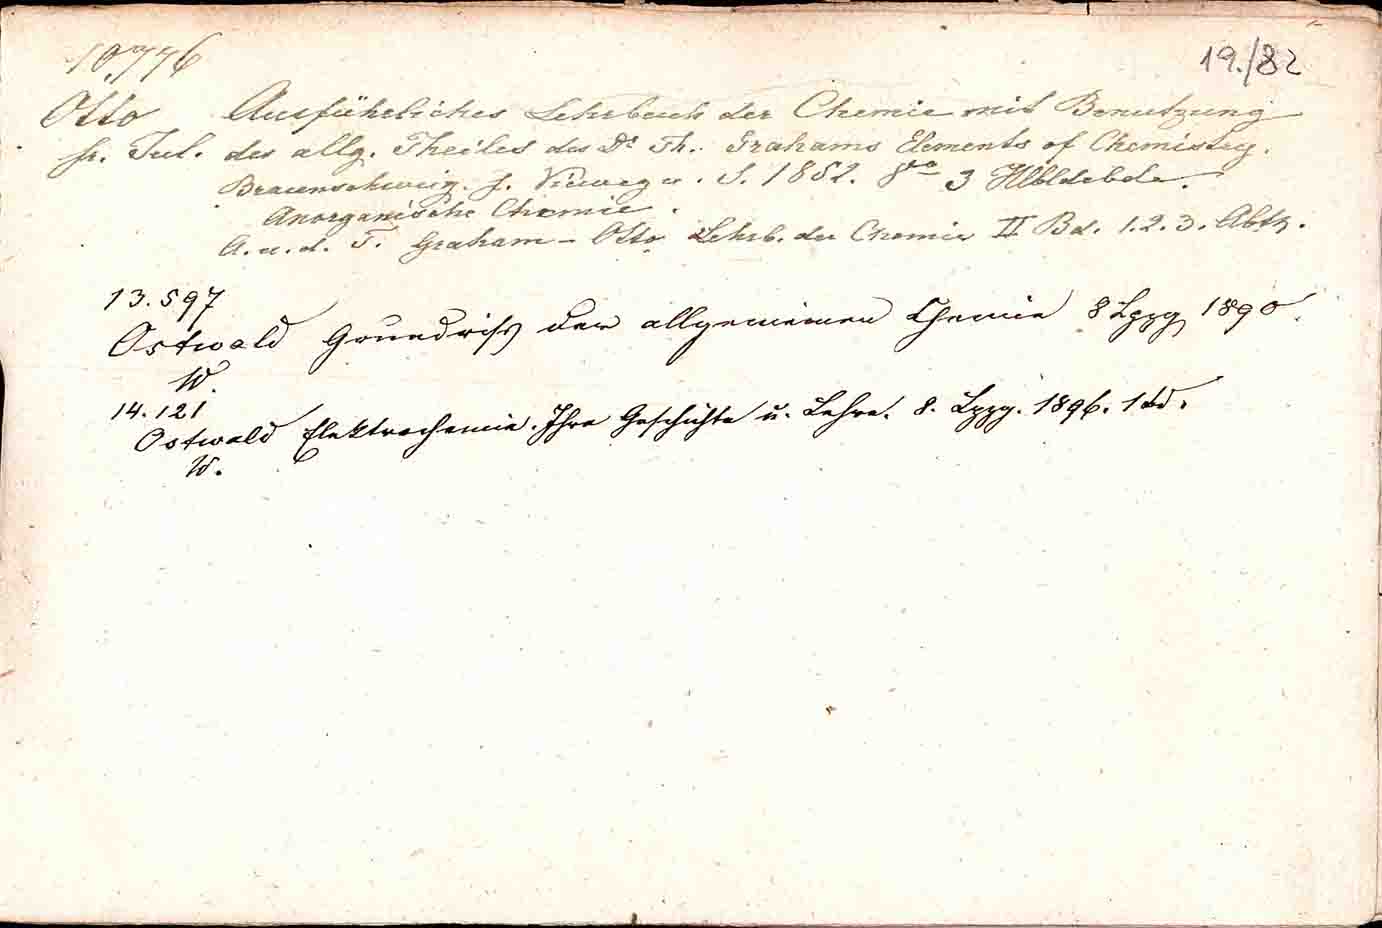 19./82
10,776
Otto Ausführliches Lehrbuch der Chemie mit Benutzung
fr. Jul. des allg. Theiles des Dr Th. Grahams Elements of Chemistry.
Braunschweig. f. Vieweg u. S. 1852. 8vo 3 Hlbldrbde.
Anorganische Chemie.
A. u. d. T. Graham - Otto Lehrb. der Chemie II Bd. 1. 2. 3. Abth.
13.597
Ostwald Grundriss der allgemeinen Chemie 8 Lpzg 1890.
W.
14.121
Ostwald Elektrochemie. Ihre Geschichte u. Lehre. 8. Lpzg. 1896. 1 Bd.
W.